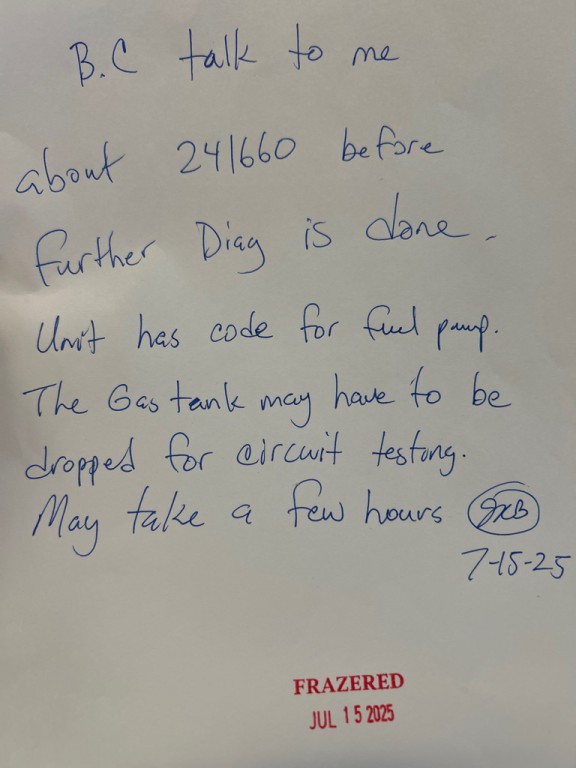 B.C talk to me
about 241660 before
further Diag is done.
Unit has code for fuel pump.
The Gas tank may have to be
dropped for circuit testing.
May take a few hours
7-15-25
FRAZERED
JUL 15 2025